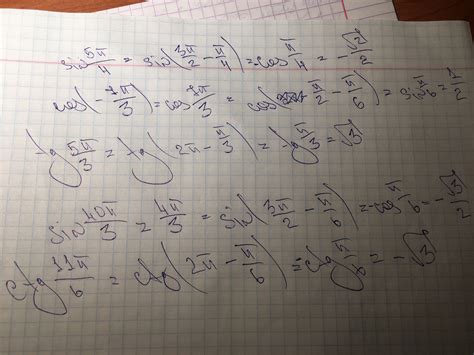 sin 5π/4 = sin(3π/2 − π/4) = −cos π/4 = −√2/2
cos(−7π/3) = cos 7π/3 = cos(π/2 − π/6) = sin π/6 = 1/2
tg 5π/3 = tg(2π − π/3) = −tg π/3 = √3
sin 40π/3 = 4π/3 = sin(3π/2 − π/6) = −cos π/6 = −√3/2
ctg 11π/6 = ctg(2π − π/6) = −ctg π/6 = −√3